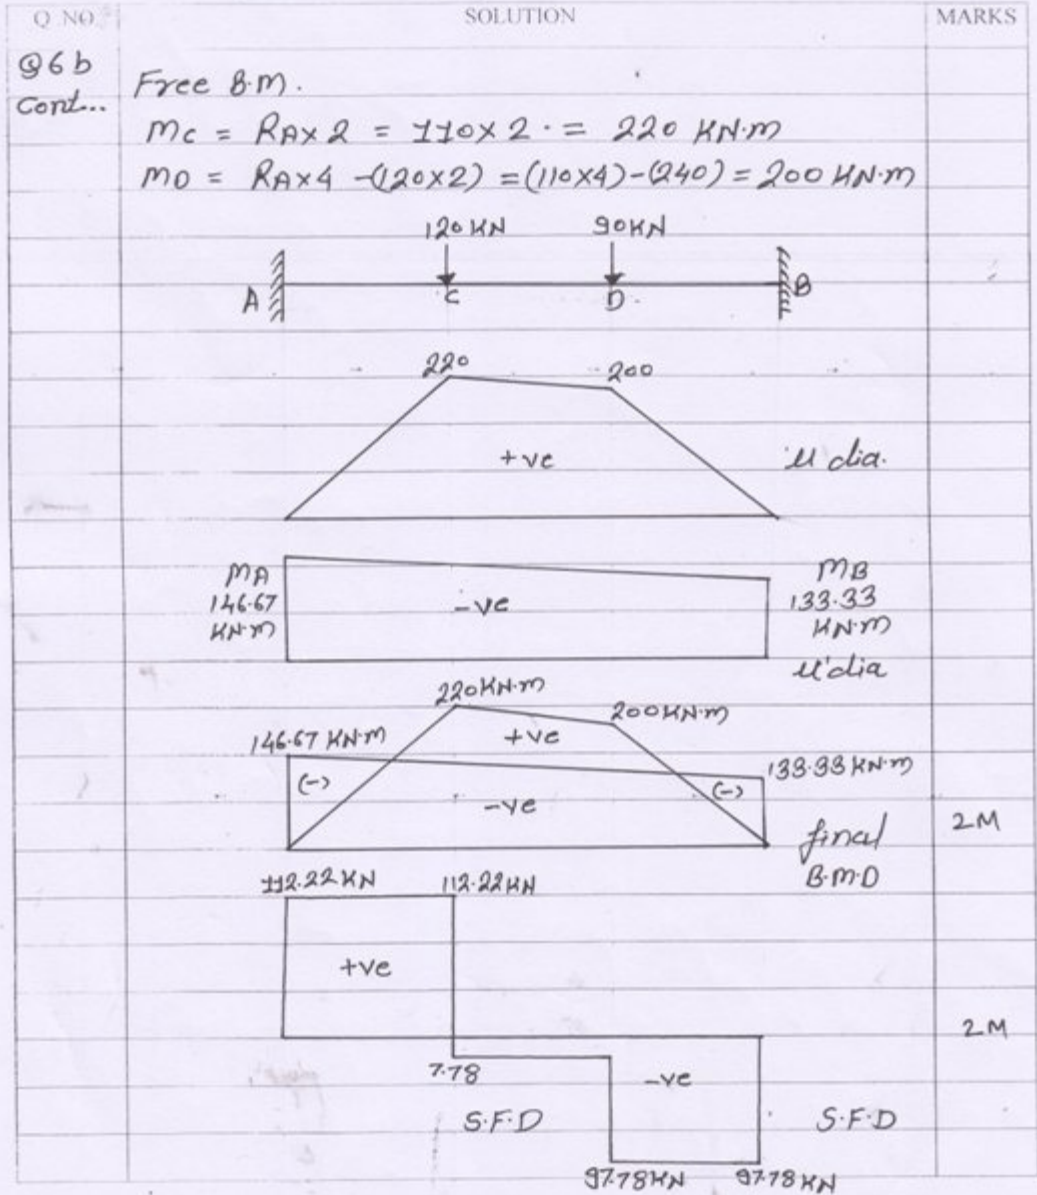 Q NO SOLUTION MARKS
Q6b
Cont...
Free B.M.
Mc = RA×2 = 110×2 . = 220 KN.m
MD = RA×4 -(120×2) = (110×4)-(240) = 200 KN.m
120KN 90KN
A C D B
220 200
+ve u dia.
MA MB
146.67 -ve 133.33
KN.m KN.m
u' dia
220KN.m 200KN.m
+ve
146.67 KN.m 133.33 KN.m
(-) -ve (-)
final 2M
B.M.D
112.22KN 112.22KN
+ve
2M
7.78 -ve
S.F.D S.F.D
97.78KN 97.78KN